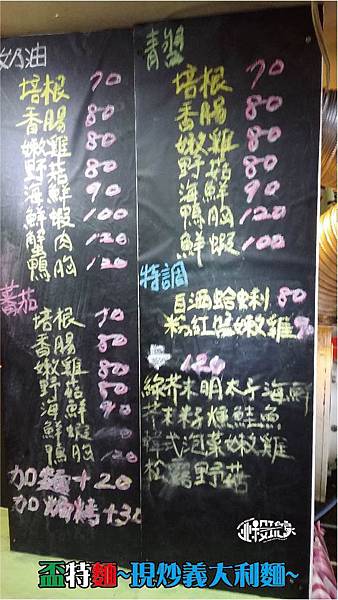 奶油
培根 70
香腸 80
嫩雞 80
野菇 80
海鮮 90
鮮蝦 100
蟹肉 120
鴨胸 120
蕃茄
培根 70
香腸 80
嫩雞 80
野菇 80
海鮮 90
鮮蝦 100
鴨胸 120
加麵+20
加焗烤+30
青醬
培根 70
香腸 80
嫩雞 80
野菇 80
海鮮 90
鴨胸 120
鮮蝦 100
特調
白酒蛤蜊 80
粉紅醬嫩雞 90
120
綠芥末明太子海鮮
芥末籽燻鮭魚
韓式泡菜嫩雞
松露野菇
盃特麵~現炒義大利麵~